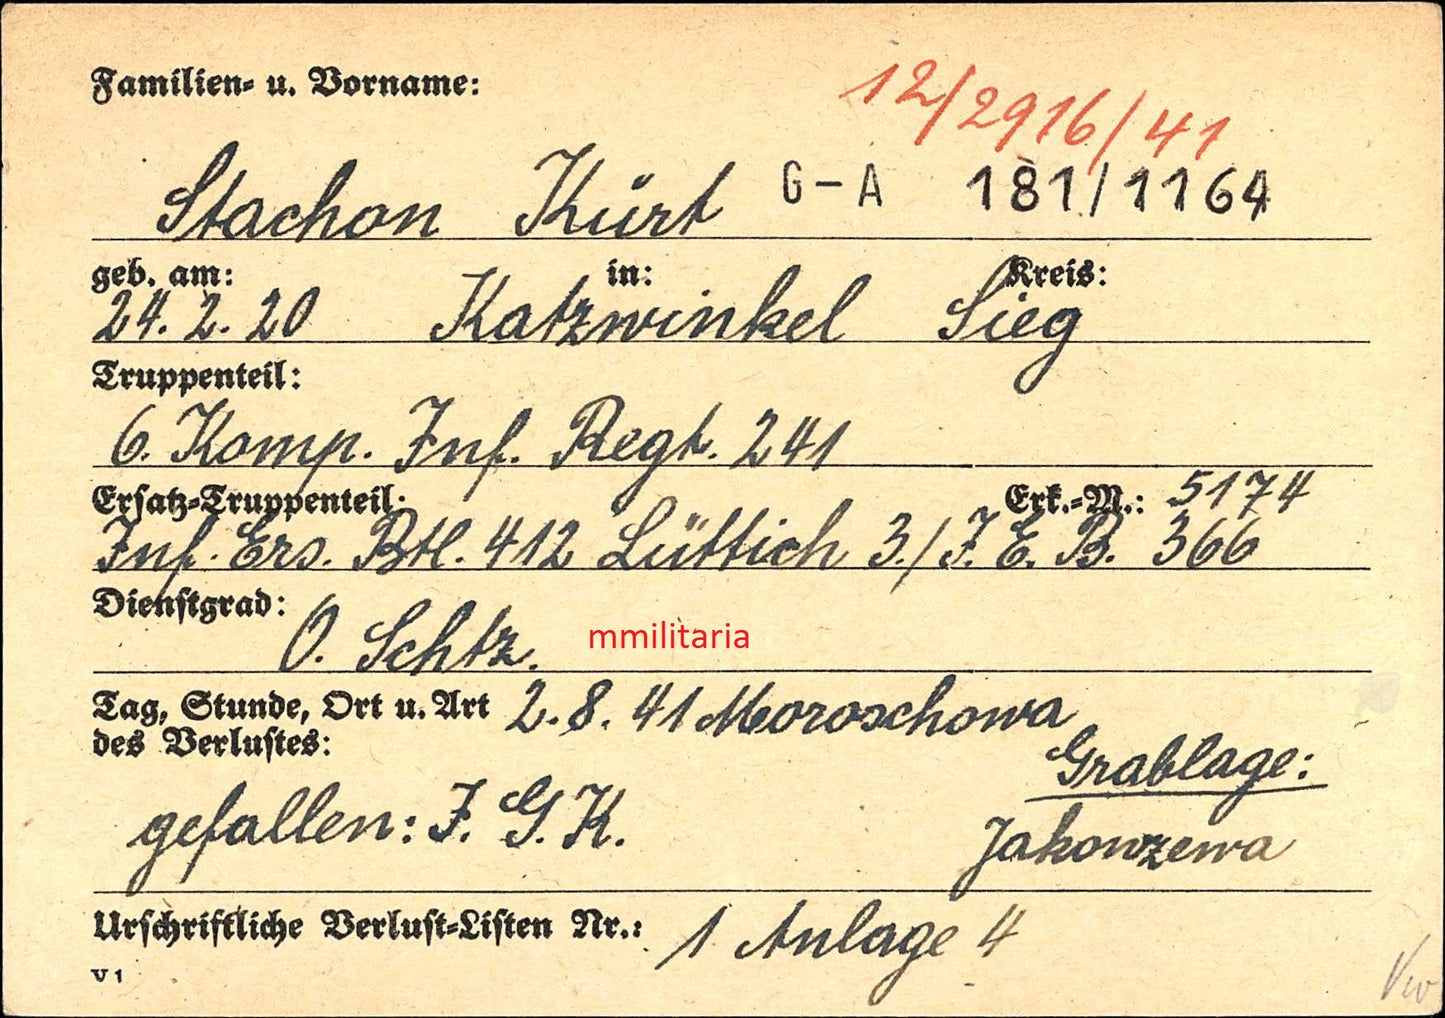 Familien- u. Vorname:
12/2916/41
Stachon Kurt G-A 181/1164
geb. am: in: Kreis:
24. 2. 20 Katzwinkel Sieg
Truppenteil:
6. Komp. Inf. Regt. 241
Ersatz-Truppenteil: Erk.-M.: 5174
Inf. Ers. Btl. 412 Lüttich 3./J. E. B. 366
Dienstgrad:
O. Schtz.
mmilitaria
Tag, Stunde, Ort u. Art 2. 8. 41 Moroschowa
des Verlustes:
Grablage:
gefallen: J. G. K.
Jakowzewa
Urschriftliche Verlust-Listen Nr.: 1 Anlage 4
V 1